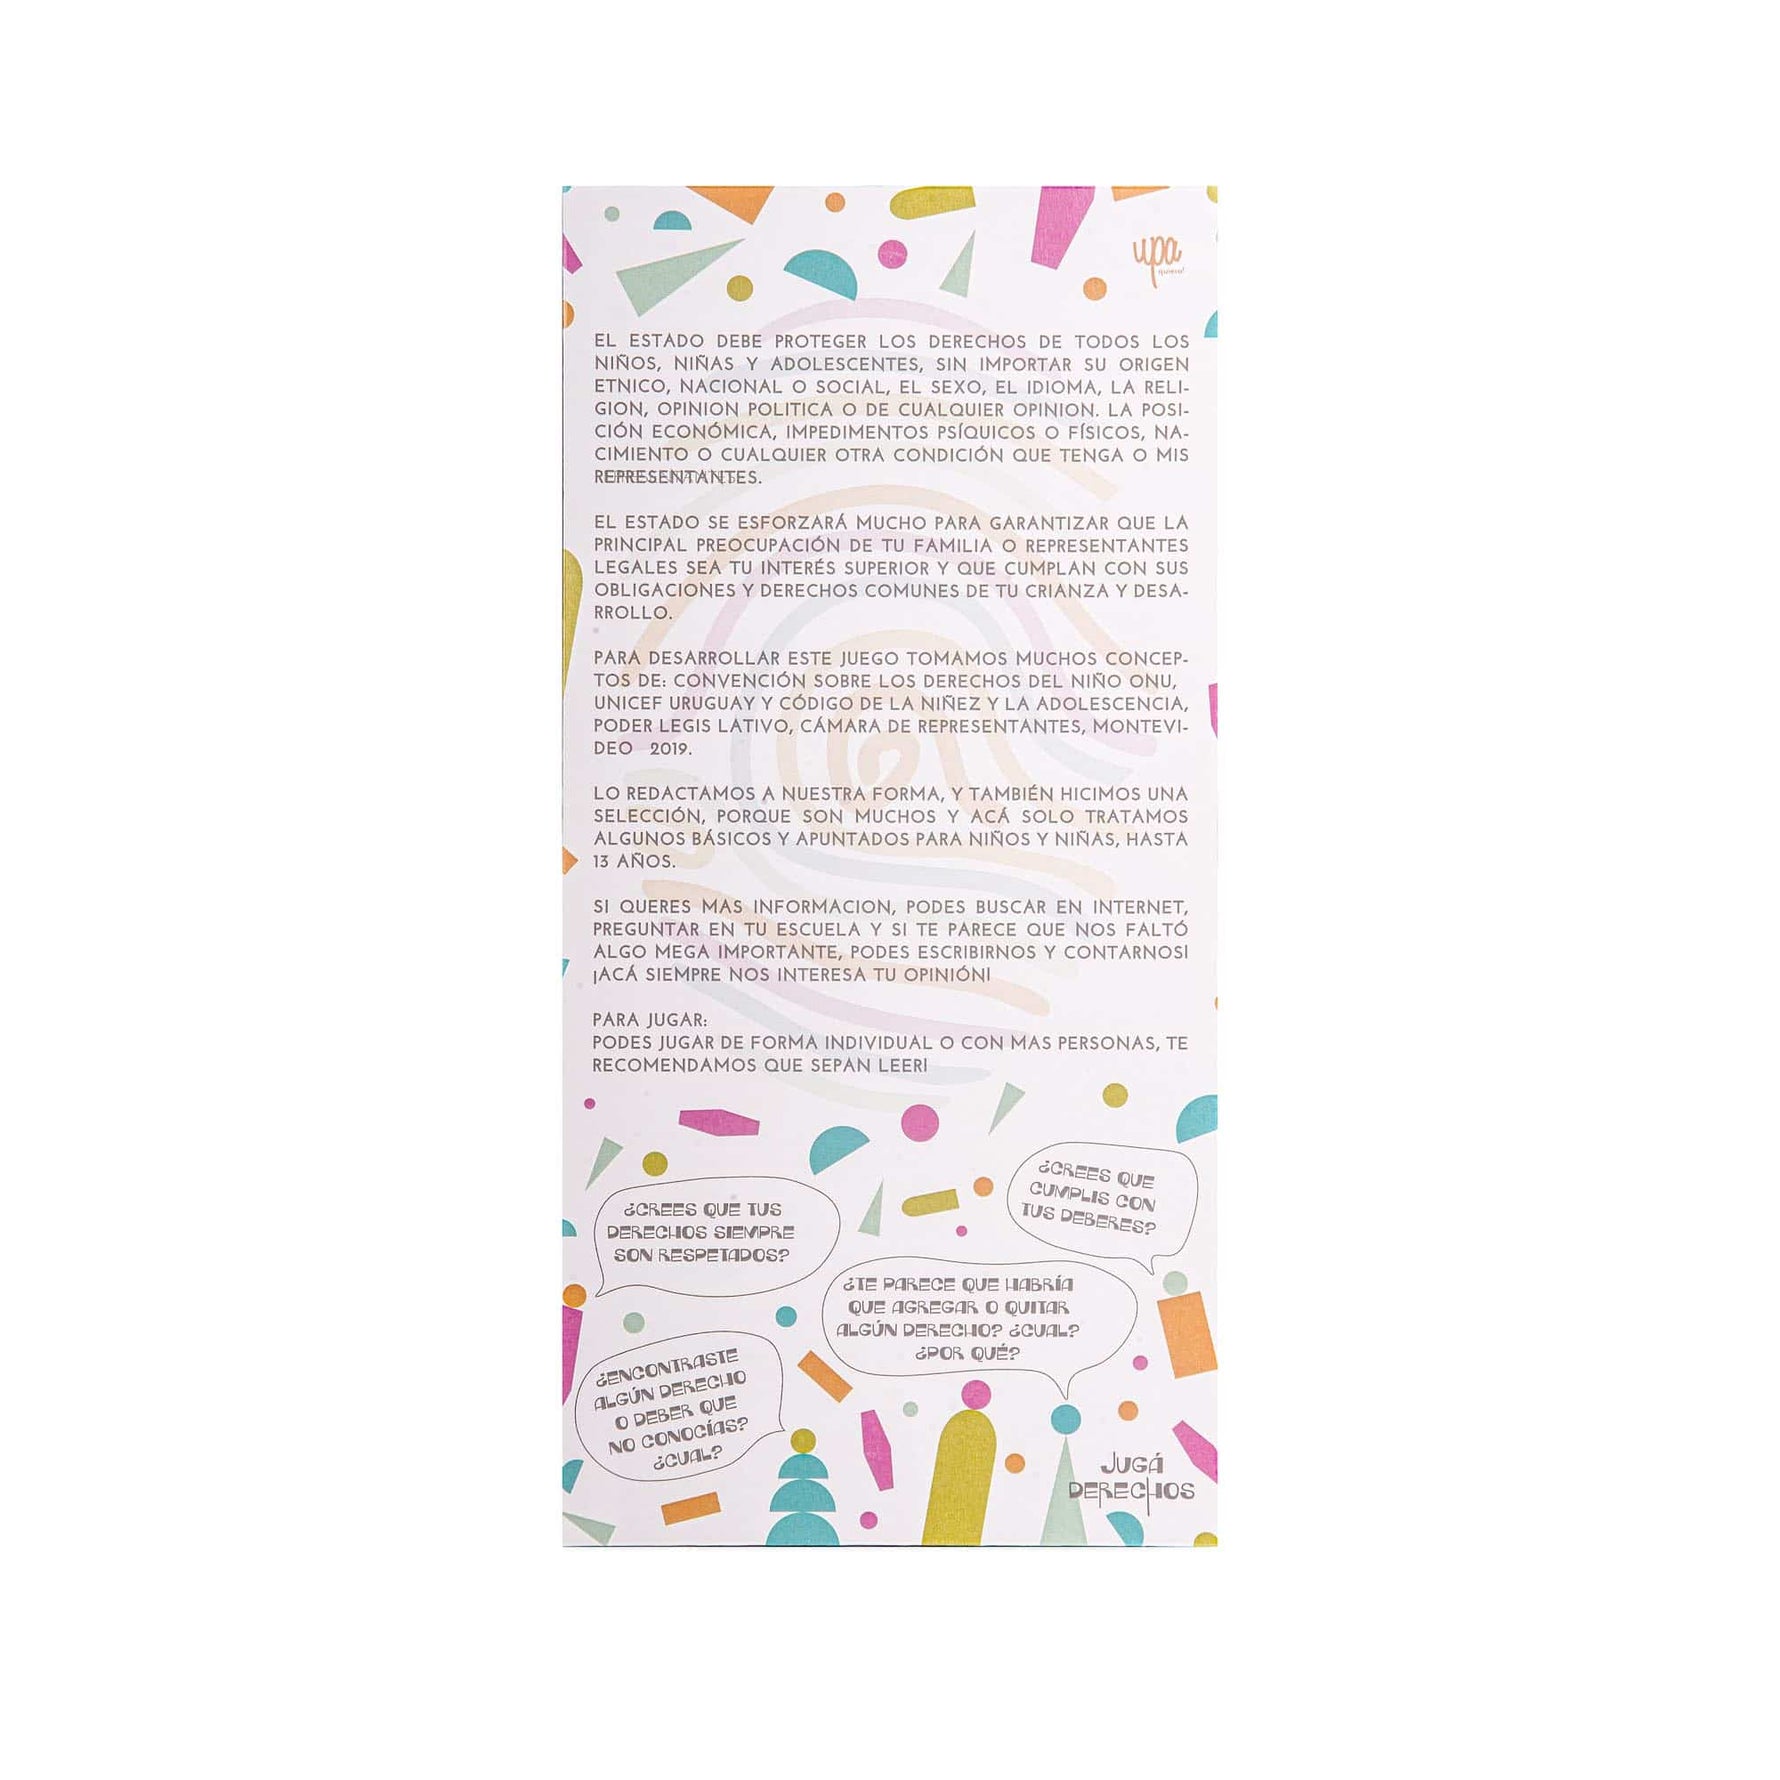 upa
quiero!
EL ESTADO DEBE PROTEGER LOS DERECHOS DE TODOS LOS
NIÑOS, NIÑAS Y ADOLESCENTES, SIN IMPORTAR SU ORIGEN
ETNICO, NACIONAL O SOCIAL, EL SEXO, EL IDIOMA, LA RELI-
GION, OPINION POLITICA O DE CUALQUIER OPINION. LA POSI-
CIÓN ECONÓMICA, IMPEDIMENTOS PSÍQUICOS O FÍSICOS, NA-
CIMIENTO O CUALQUIER OTRA CONDICIÓN QUE TENGA O MIS
REPRESENTANTES.
EL ESTADO SE ESFORZARÁ MUCHO PARA GARANTIZAR QUE LA
PRINCIPAL PREOCUPACIÓN DE TU FAMILIA O REPRESENTANTES
LEGALES SEA TU INTERÉS SUPERIOR Y QUE CUMPLAN CON SUS
OBLIGACIONES Y DERECHOS COMUNES DE TU CRIANZA Y DESA-
RROLLO.
PARA DESARROLLAR ESTE JUEGO TOMAMOS MUCHOS CONCEP-
TOS DE: CONVENCIÓN SOBRE LOS DERECHOS DEL NIÑO ONU,
UNICEF URUGUAY Y CÓDIGO DE LA NIÑEZ Y LA ADOLESCENCIA,
PODER LEGIS LATIVO, CÁMARA DE REPRESENTANTES, MONTEVI-
DEO 2019.
LO REDACTAMOS A NUESTRA FORMA, Y TAMBIÉN HICIMOS UNA
SELECCIÓN, PORQUE SON MUCHOS Y ACÁ SOLO TRATAMOS
ALGUNOS BÁSICOS Y APUNTADOS PARA NIÑOS Y NIÑAS, HASTA
13 AÑOS.
SI QUERES MAS INFORMACION, PODES BUSCAR EN INTERNET,
PREGUNTAR EN TU ESCUELA Y SI TE PARECE QUE NOS FALTÓ
ALGO MEGA IMPORTANTE, PODES ESCRIBIRNOS Y CONTARNOS!
¡ACÁ SIEMPRE NOS INTERESA TU OPINIÓN!
PARA JUGAR:
PODES JUGAR DE FORMA INDIVIDUAL O CON MAS PERSONAS, TE
RECOMENDAMOS QUE SEPAN LEER!
¿CREES QUE
CUMPLIS CON
TUS DEBERES?
¿CREES QUE TUS
DERECHOS SIEMPRE
SON RESPETADOS?
¿TE PARECE QUE HABRÍA
QUE AGREGAR O QUITAR
ALGÚN DERECHO? ¿CUAL?
¿POR QUÉ?
¿ENCONTRASTE
ALGÚN DERECHO
O DEBER QUE
NO CONOCÍAS?
¿CUAL?
JUGÁ
DERECHOS